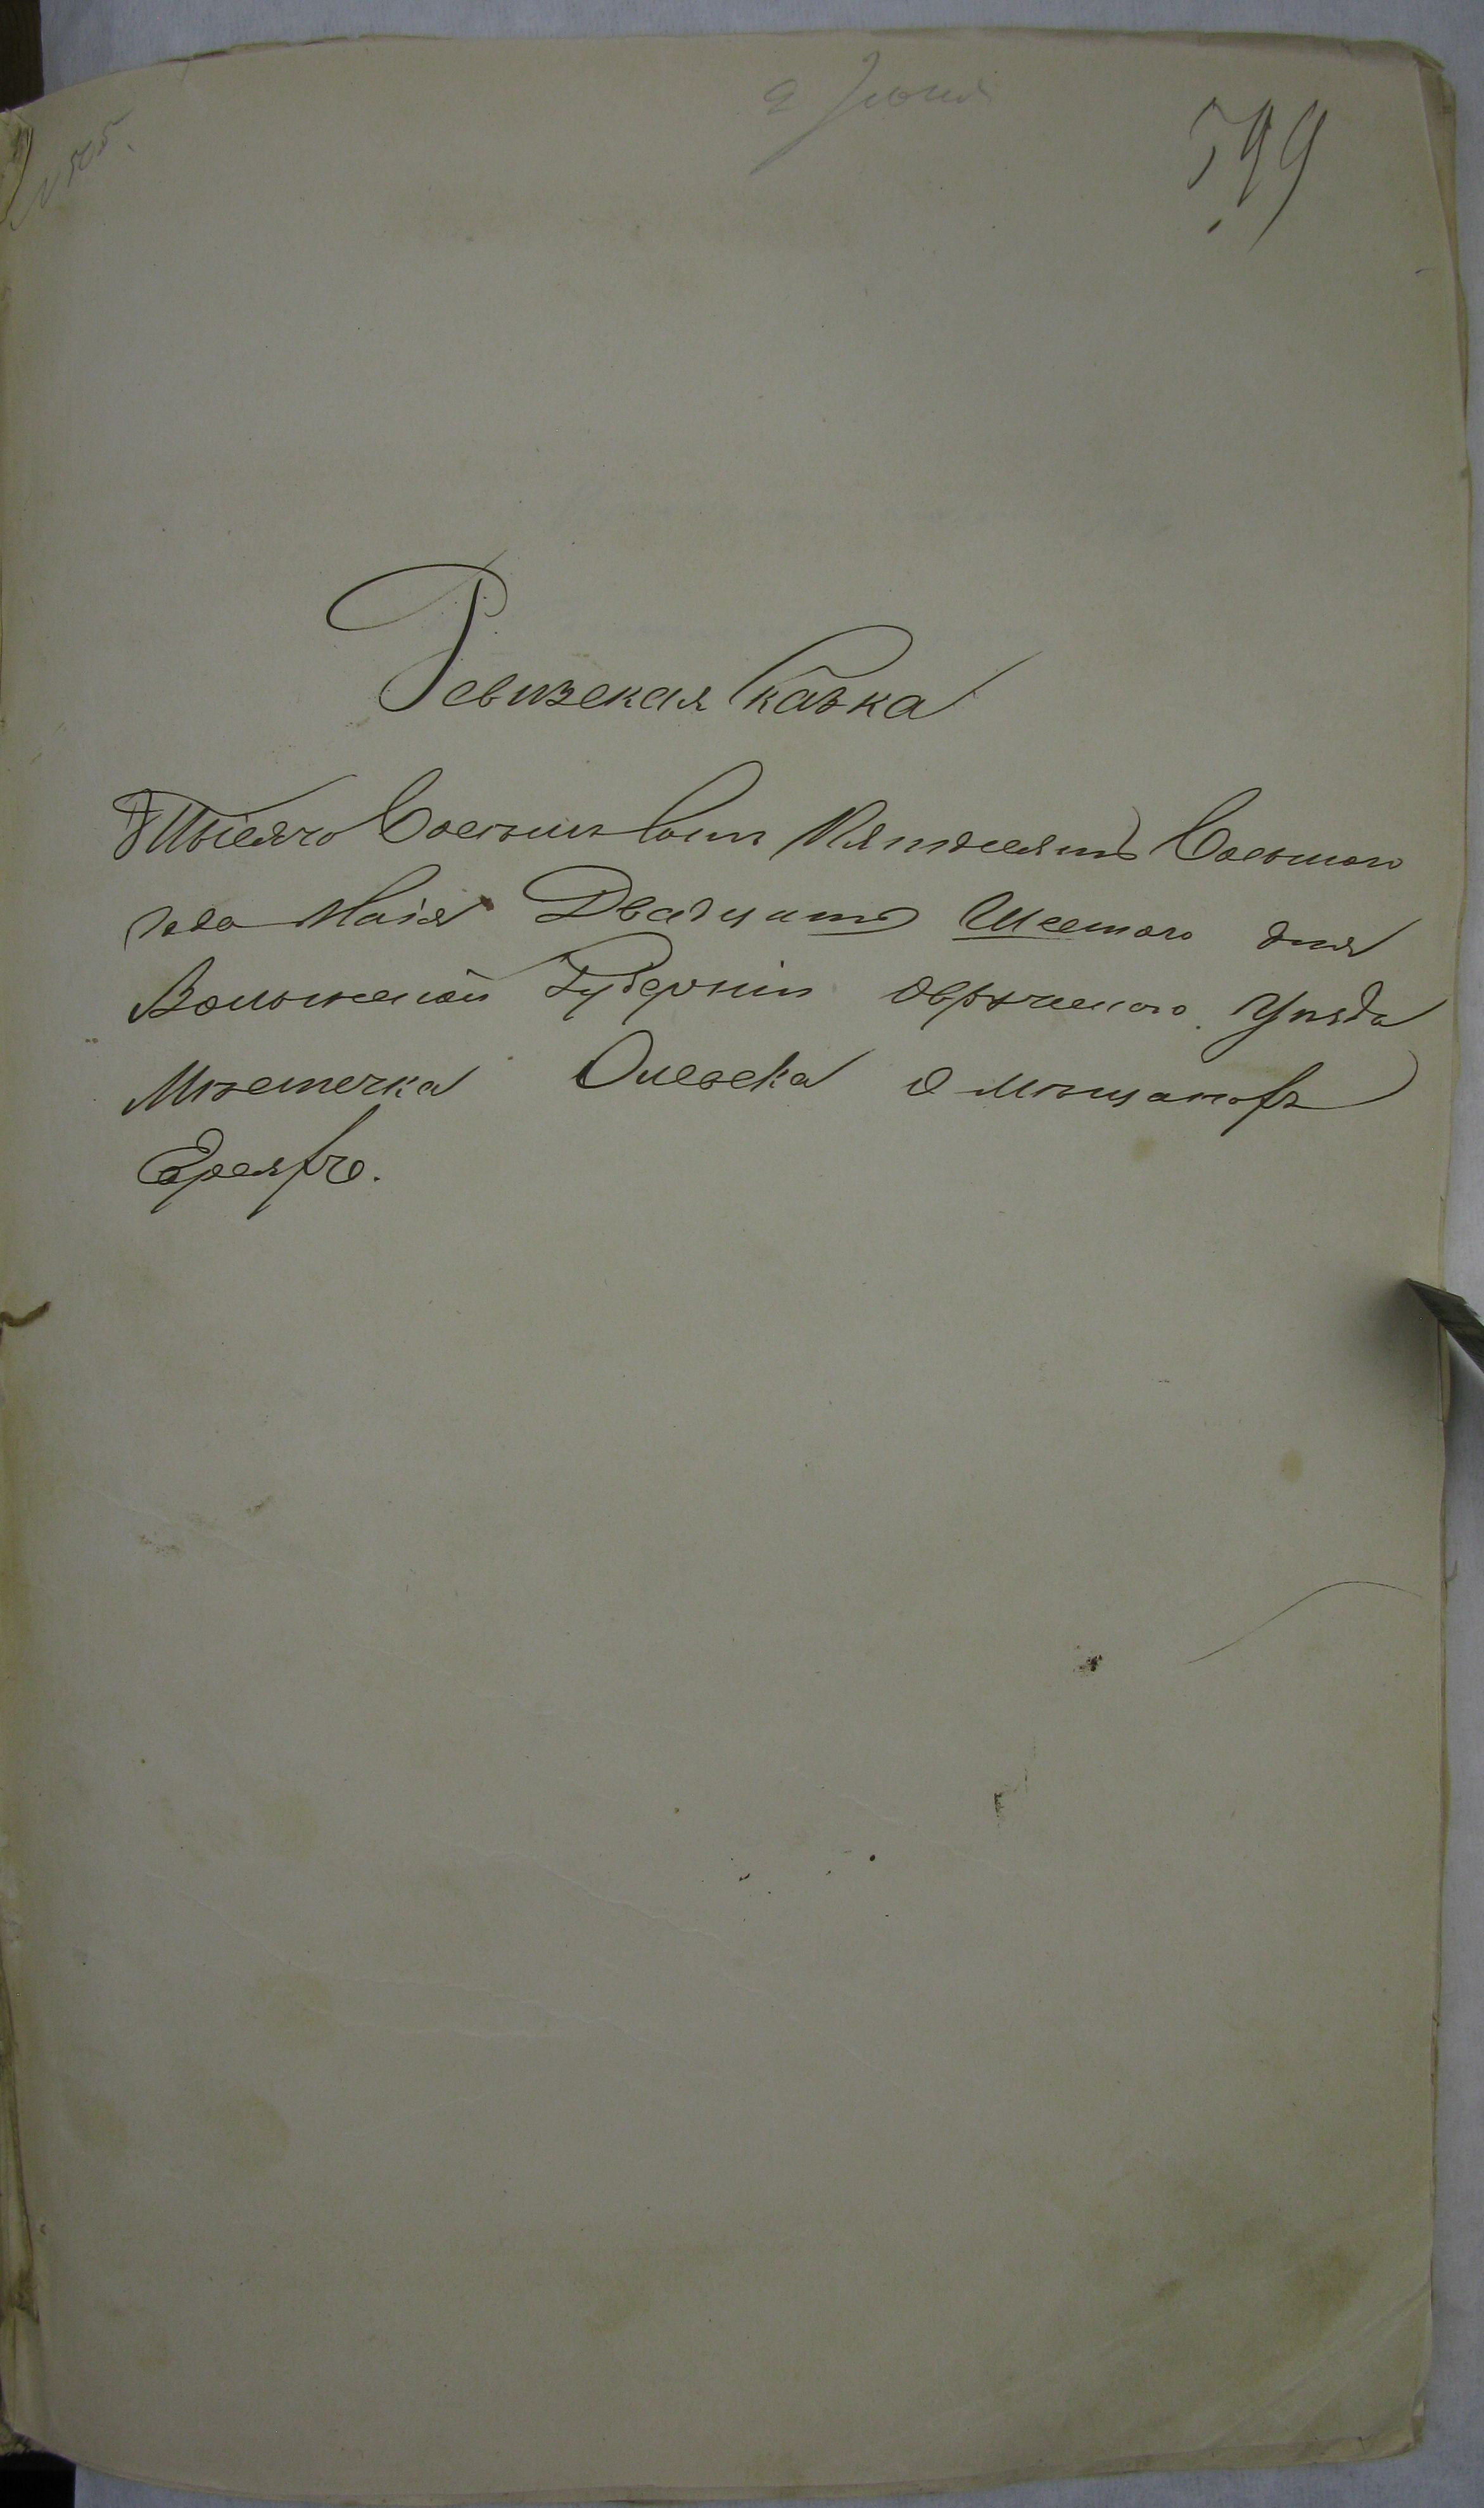 № 505.
9 Июня
599
Ревизская Сказка
Тысячо Восемь Сотъ Пятдесятъ Восьмого
года Маія Двадцать Шестого дня
Волынской Губерніи Овручского Уѣзда
Мѣстечка Олевска О мѣщанахъ
Евреяхъ.